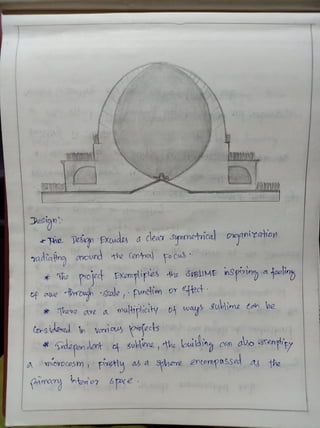 Design:
* The Design Exudes a clear symmetrical organization
radiating around the central focus.
* The project Exemplifies the SUBLIME inspiring a feeling
of awe through scale, function or effect.
* There are a multiplicity of ways sublime can be
considered in various projects
* Independent of sublime, the building can also exemplify
a microcosm, firstly as a sphere encompassed as the
primary interior space.